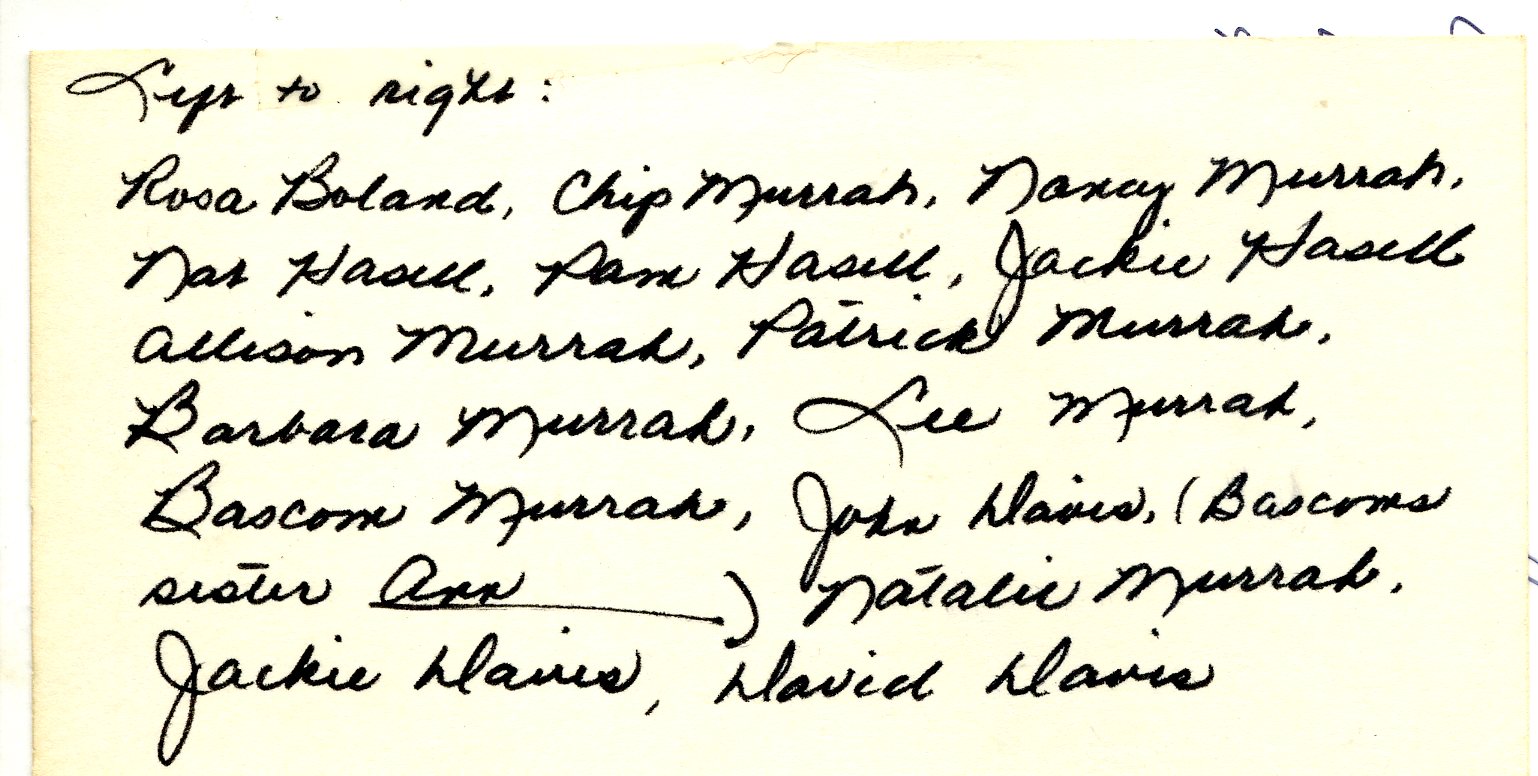 Left to right:
Rosa Boland, Chip Murrah, Nancy Murrah,
Nat Hasell, Pam Hasell, Jackie Hasell
Allison Murrah, Patrick Murrah,
Barbara Murrah, Lee Murrah,
Bascom Murrah, John Davis, (Bascoms
sister Ann ) Natalie Murrah,
Jackie Davis, David Davis